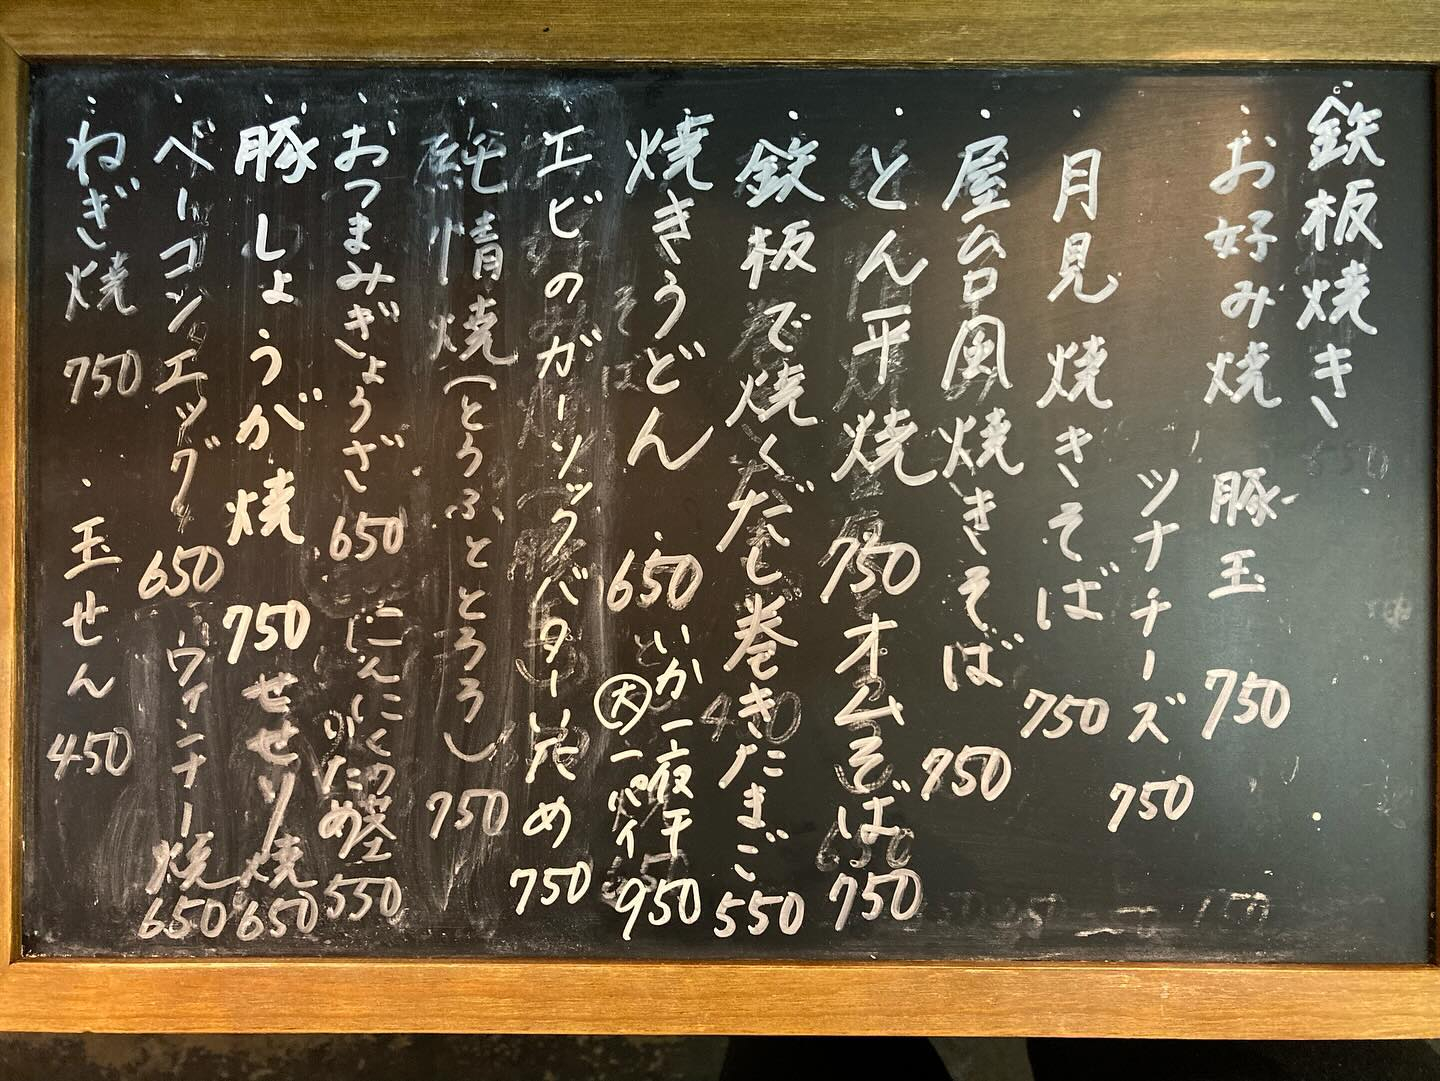 鉄板焼き
・お好み焼 豚玉 750
ツナチーズ 750
・月見焼きそば 750
・屋台風焼きそば 750
・とん平焼 750
オムそば 750
・鉄板で焼くだし巻きたまご 550
・焼きうどん 650
・いか一夜干 大一パイ 950
・エビのガーリックバターいため 750
・純情焼(とうふととろろ) 750
・おつまみぎょうざ 650
・にんにくの芽いため 550
・豚しょうが焼 750
・せせり焼 650
・ベーコンエッグ 650
・ウィンナー焼 650
・ねぎ焼 750
・玉せん 450